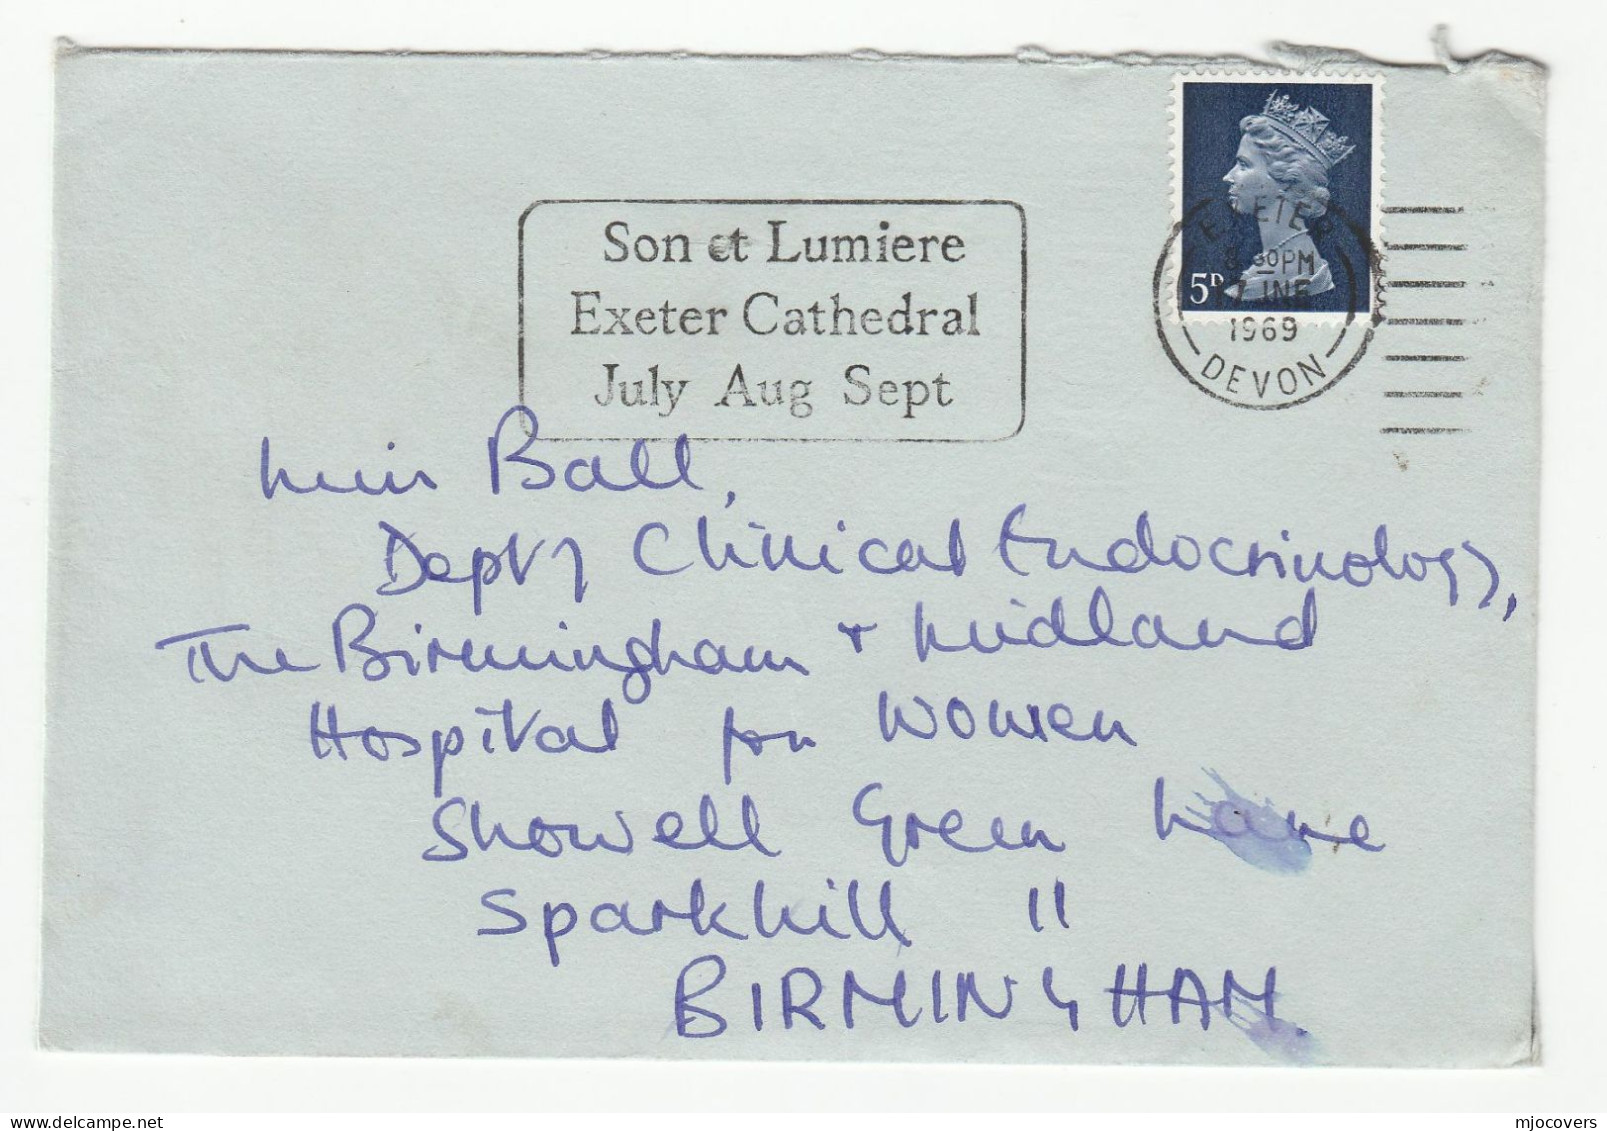 Son et Lumiere
Exeter Cathedral
July Aug Sept
EXETER
30PM
JNE
1969
DEVON
5D
Ball,
Dept of Clinical Endocrinology,
The Birmingham + Midland
Hospital for Women
Showell Green Lane
Sparkhill 11
BIRMINGHAM.
mjocovers